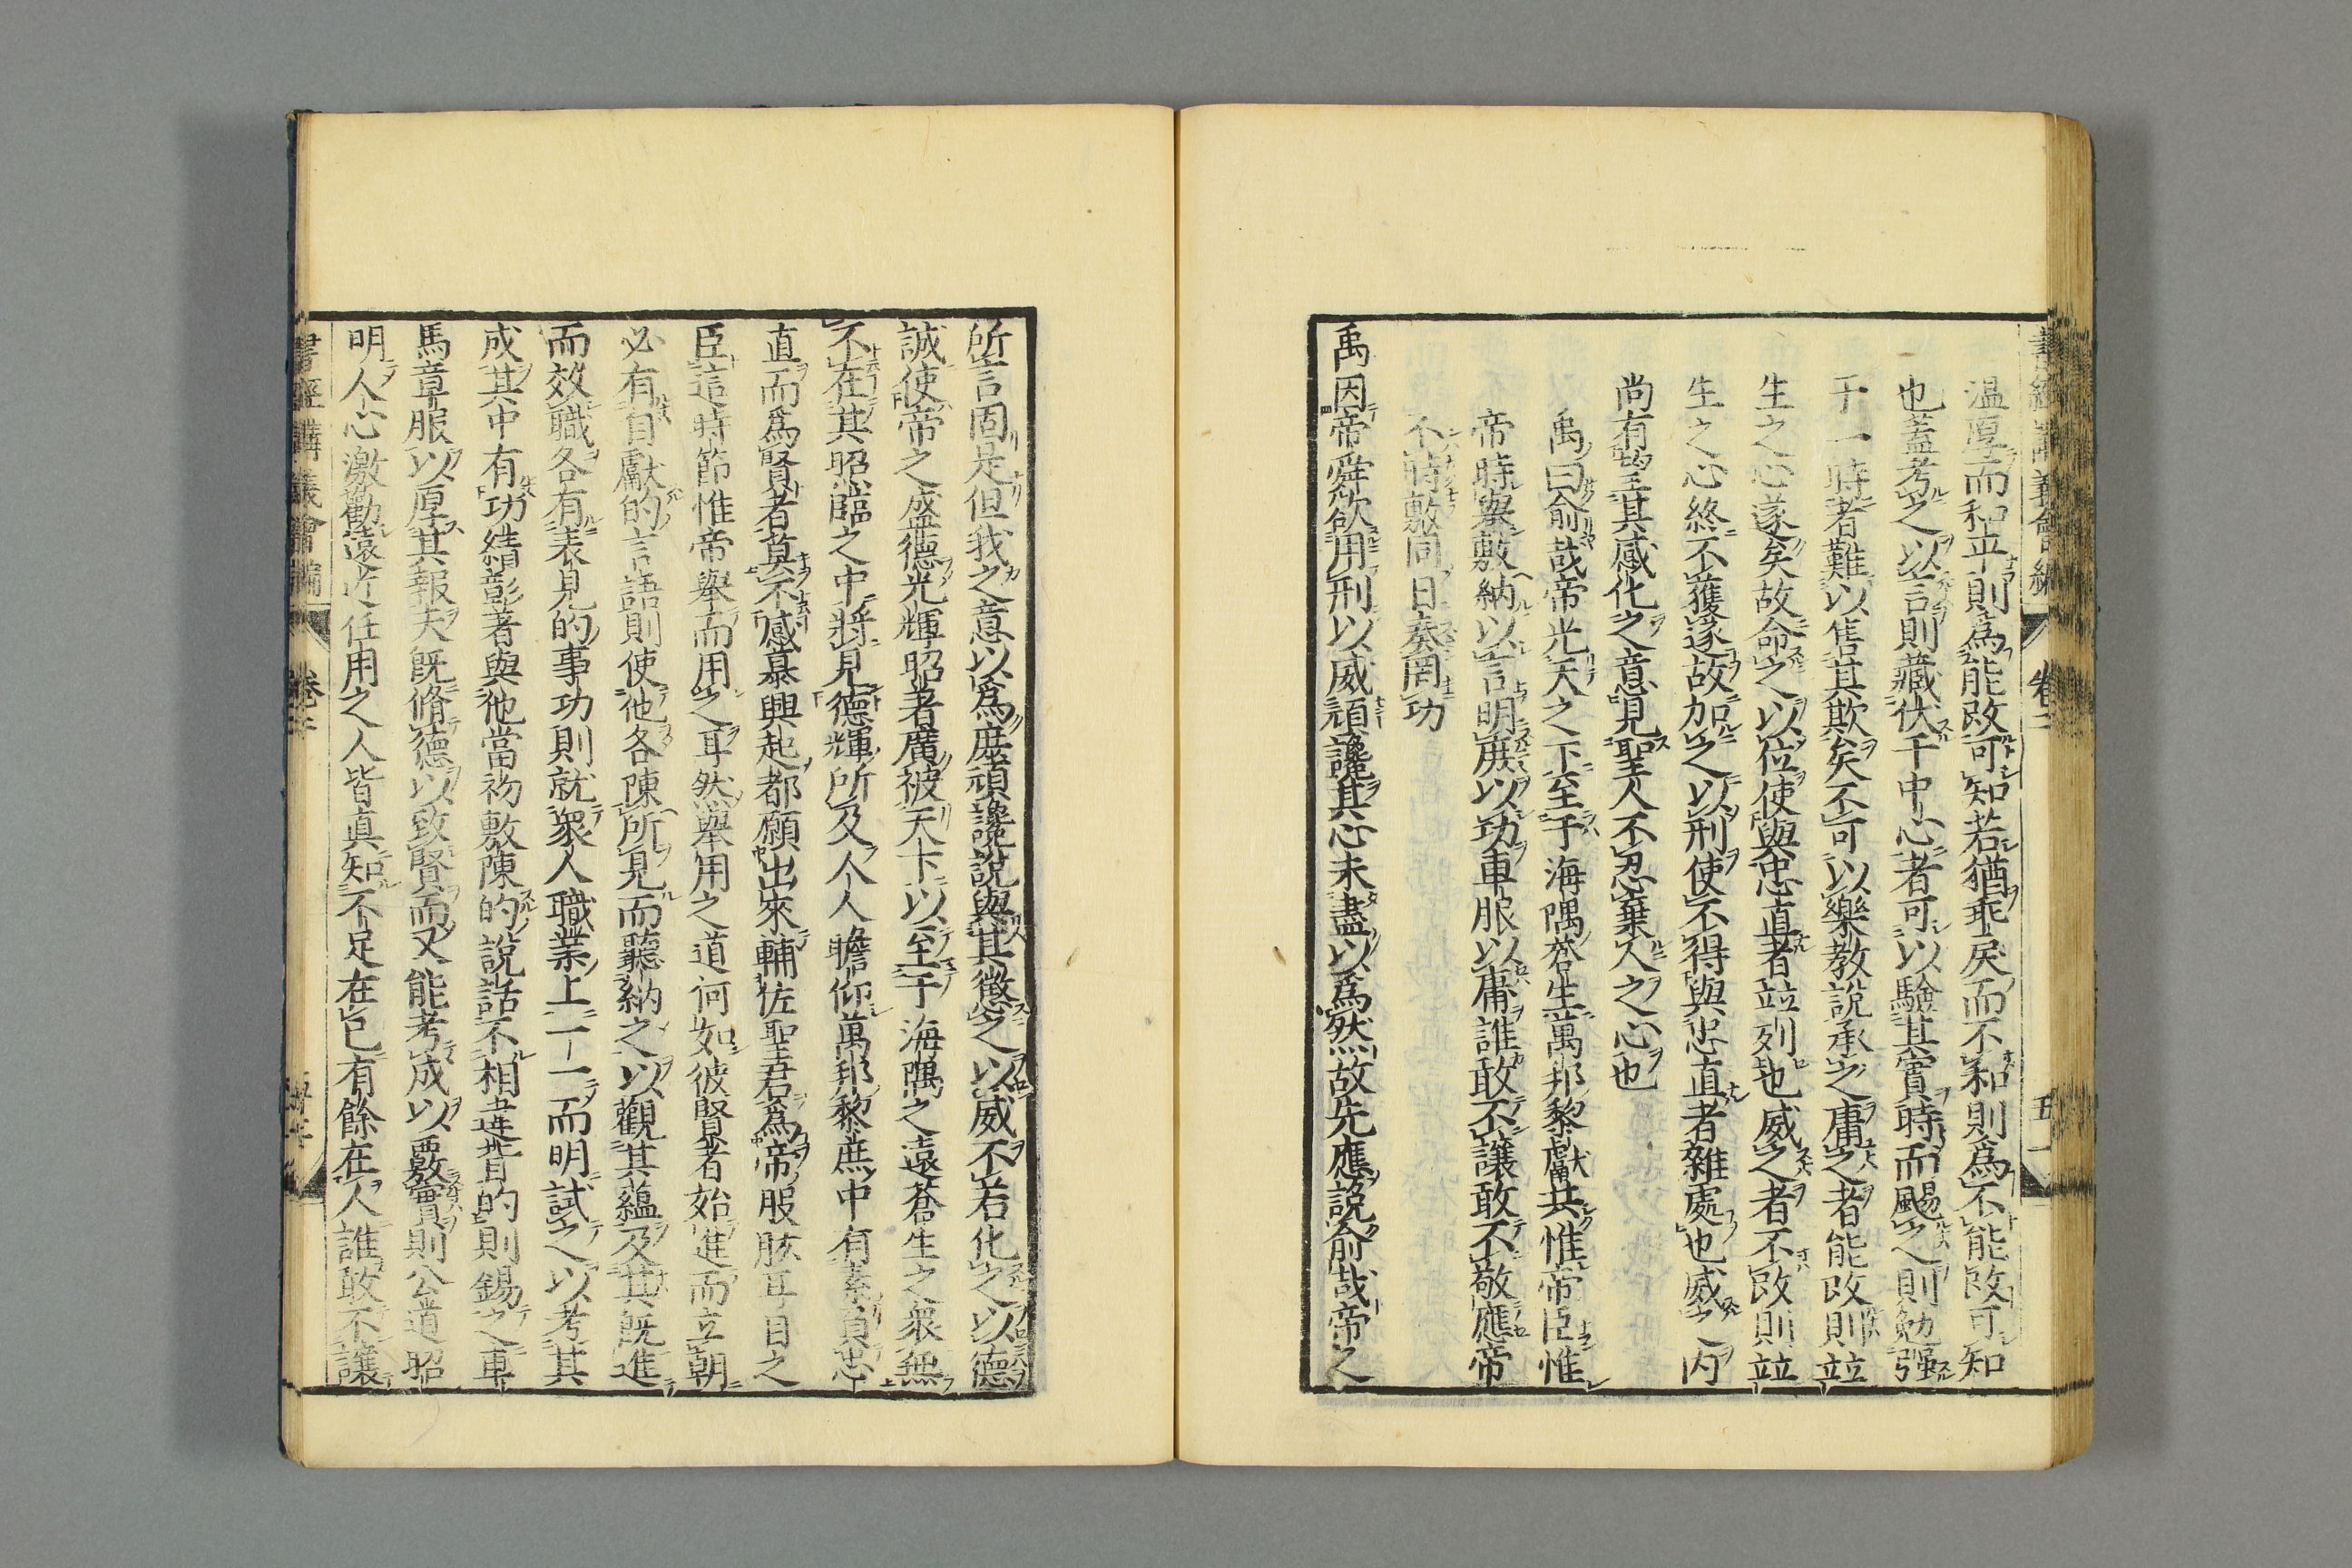 書經講義會編 卷二 五十
溫厚而和平則爲能改可知若猶乖戾而不和則爲不能改可知
也蓋考之以言則藏伏于中心者可以驗其實時而颺之則勉强
于一時者難以售其欺矣不可以樂教說承之庸之者能改則竝
生之心遂矣故命之以位使與忠直者竝列也威之者不改則竝
生之心終不獲遂故加之以刑使不得與忠直者雜處也威之內
尚有望其感化之意見聖人不忍棄人之心也
禹曰俞哉帝光天之下至于海隅蒼生萬邦黎獻共惟帝臣惟
帝時舉敷納以言明庶以功車服以庸誰敢不讓敢不敬應帝
不時敷同日奏罔功
禹因帝舜欲用刑以威頑讒其心未盡以爲然故先應說俞哉帝之
所言固是但我之意以爲庶頑讒說與其懲之以威不若化之以德
誠使帝之盛德光輝昭著廣被天下以至于海隅之遠蒼生之衆無
不在其昭臨之中將見德輝所及人人瞻仰萬邦黎庶中有素負忠
直而爲賢者莫不感慕興起都願出來輔佐聖君爲帝服肱耳目之
臣這時節惟帝舉而用之耳然舉用之道何如彼賢者始進而立朝
必有自獻的言語則使他各陳所見而聽納之以觀其蘊及其既進
而效職各有表見的事功則就衆人職業上一一而明試之以考其
成其中有功績彰著與他當初敷陳的說話不相違背的則錫之車
馬章服以厚其報夫既脩德以致賢而又能考成以覈實則公道昭
明人心激勸遠近任用之人皆真知不足在已有餘在人誰敢不讓
書經講義會編 卷二